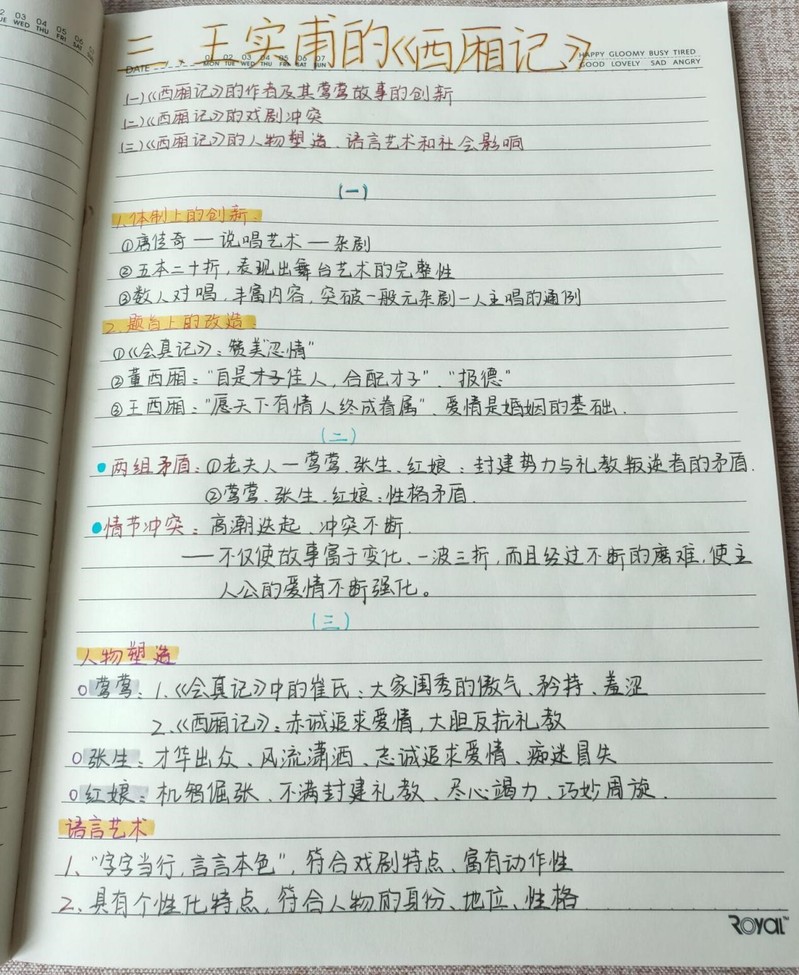 三、王实甫的《西厢记》
DATE
01 02 03 04 05 06 07
MON TUE WED THU FRI SAT SUN
HAPPY GLOOMY BUSY TIRED
GOOD LOVELY SAD ANGRY
(一)《西厢记》的作者及其莺莺故事的创新
(二)《西厢记》的戏剧冲突
(三)《西厢记》的人物塑造、语言艺术和社会影响
(一)
1.体制上的创新:
①唐传奇—说唱艺术—杂剧
②五本二十折,表现出舞台艺术的完整性
③数人对唱,丰富内容,突破一般元杂剧一人主唱的通例
2.题旨上的改造:
①《会真记》:赞美"忍情"
②董西厢:"自是佳人,合配才子"、"报德"
③王西厢:"愿天下有情人终成眷属"、爱情是婚姻的基础.
(二)
两组矛盾:①老夫人—莺莺、张生、红娘:封建势力与礼教叛逆者的矛盾.
②莺莺、张生、红娘:性格矛盾.
情节冲突:高潮迭起、冲突不断.
——不仅使故事富于变化、一波三折,而且经过不断的磨难,使主
人公的爱情不断强化。
(三)
人物塑造
莺莺:1.《会真记》中的崔氏:大家闺秀的傲气、矜持、羞涩
2.《西厢记》:赤诚追求爱情,大胆反抗礼教
张生:才华出众、风流潇洒、志诚追求爱情、痴迷冒失
红娘:机智倔强、不满封建礼教、尽心竭力、巧妙周旋.
语言艺术
1、"字字当行,言言本色",符合戏剧特点、富有动作性
2、具有个性化特点,符合人物的身份、地位、性格
ROYAL